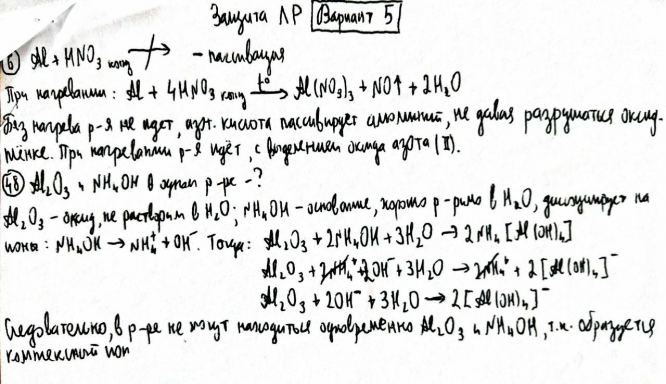 Защита ЛР Вариант 5
6) Al + HNO₃ конц ↛ - пассивация
При нагревании: Al + 4HNO₃ конц →(t°) Al(NO₃)₃ + NO↑ + 2H₂O
Без нагрева р-я не идет, азот. кислота пассивирует алюминий, не давая разрушаться оксид.
плёнке. При нагревании р-я идёт, с выделением оксида азота (II).
48) Al₂O₃ и NH₄OH в одном р-ре -?
Al₂O₃ - оксид, не растворим в H₂O; NH₄OH - основание, хорошо р-римо в H₂O, диссоциирует на
ионы: NH₄OH → NH₄⁺ + OH⁻. Тогда: Al₂O₃ + 2NH₄OH + 3H₂O → 2NH₄[Al(OH)₄]
Al₂O₃ + 2NH₄⁺ + 2OH⁻ + 3H₂O → 2NH₄⁺ + 2[Al(OH)₄]⁻
Al₂O₃ + 2OH⁻ + 3H₂O → 2[Al(OH)₄]⁻
Следовательно, в р-ре не могут находиться одновременно Al₂O₃ и NH₄OH, т.к. образуется
комплексный ион